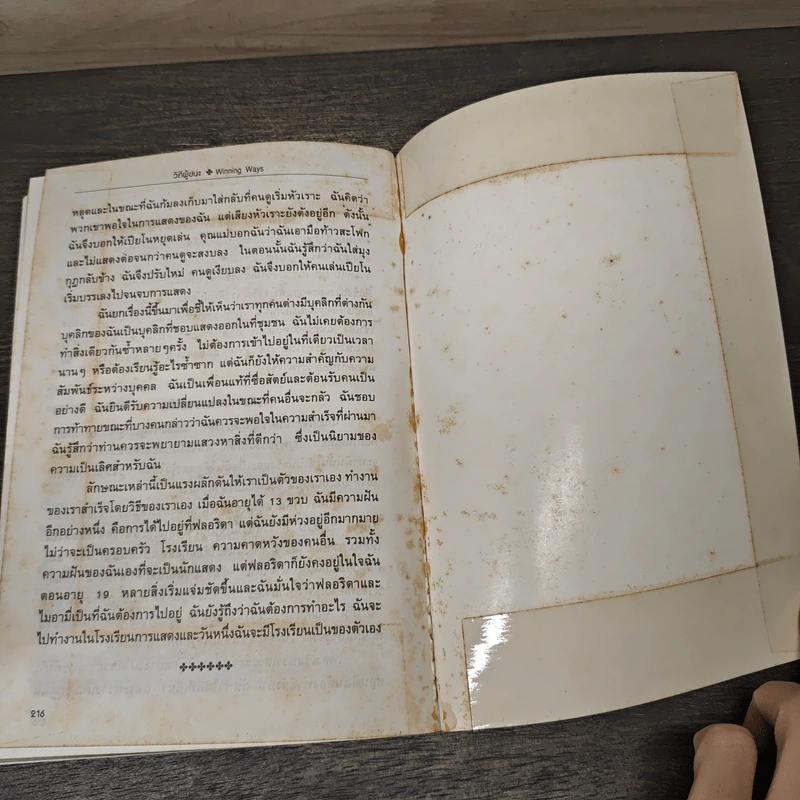 วิถีผู้ชนะ ✤ Winning Ways
หลุดและในขณะที่ฉันก้มลงเก็บมาใส่กลับที่คนดูเริ่มหัวเราะ ฉันคิดว่า
พวกเขาพอใจในการแสดงของฉัน แต่เสียงหัวเราะยังดังอยู่อีก ดังนั้น
ฉันจึงบอกให้เปียโนหยุดเล่น คุณแม่บอกฉันว่าฉันเอามือท้าวสะโพก
และไม่แสดงต่อจนกว่าคนดูจะสงบลง ในตอนนั้นฉันรู้สึกว่าฉันใส่มง
กุฎกลับข้าง ฉันจึงปรับใหม่ คนดูเงียบลง ฉันจึงบอกให้คนเล่นเปียโน
เริ่มบรรเลงไปจนจบการแสดง
ฉันยกเรื่องนี้ขึ้นมาเพื่อชี้ให้เห็นว่าเราทุกคนต่างมีบุคลิกที่ต่างกัน
บุคลิกของฉันเป็นบุคลิกที่ชอบแสดงออกในที่ชุมชน ฉันไม่เคยต้องการ
ทำสิ่งเดียวกันซ้ำหลายๆครั้ง ไม่ต้องการเข้าไปอยู่ในที่เดียวเป็นเวลา
นานๆ หรือต้องเรียนรู้อะไรซ้ำซาก แต่ฉันก็ยังให้ความสำคัญกับความ
สัมพันธ์ระหว่างบุคคล ฉันเป็นเพื่อนแท้ที่ซื่อสัตย์และต้อนรับคนเป็น
อย่างดี ฉันยินดีรับความเปลี่ยนแปลงในขณะที่คนอื่นจะกลัว ฉันชอบ
การท้าทายขณะที่บางคนกล่าวว่าฉันควรจะพอใจในความสำเร็จที่ผ่านมา
ฉันรู้สึกว่าท่านควรจะพยายามแสวงหาสิ่งที่ดีกว่า ซึ่งเป็นนิยามของ
ความเป็นเลิศสำหรับฉัน
ลักษณะเหล่านี้เป็นแรงผลักดันให้เราเป็นตัวของเราเอง ทำงาน
ของเราสำเร็จโดยวิธีของเราเอง เมื่อฉันอายุได้ 13 ขวบ ฉันมีความฝัน
อีกอย่างหนึ่ง คือการได้ไปอยู่ที่ฟลอริดา แต่ฉันยังมีห่วงอยู่อีกมากมาย
ไม่ว่าจะเป็นครอบครัว โรงเรียน ความคาดหวังของคนอื่น รวมทั้ง
ความฝันของฉันเองที่จะเป็นนักแสดง แต่ฟลอริดาก็ยังคงอยู่ในใจฉัน
ตอนอายุ 19 หลายสิ่งเริ่มแจ่มชัดขึ้นและฉันมั่นใจว่าฟลอริดาและ
ไมอามี่เป็นที่ฉันต้องการไปอยู่ ฉันยังรู้ถึงว่าฉันต้องการทำอะไร ฉันจะ
ไปทำงานในโรงเรียนการแสดงและวันหนึ่งฉันจะมีโรงเรียนเป็นของตัวเอง
✤✤✤✤✤✤
216